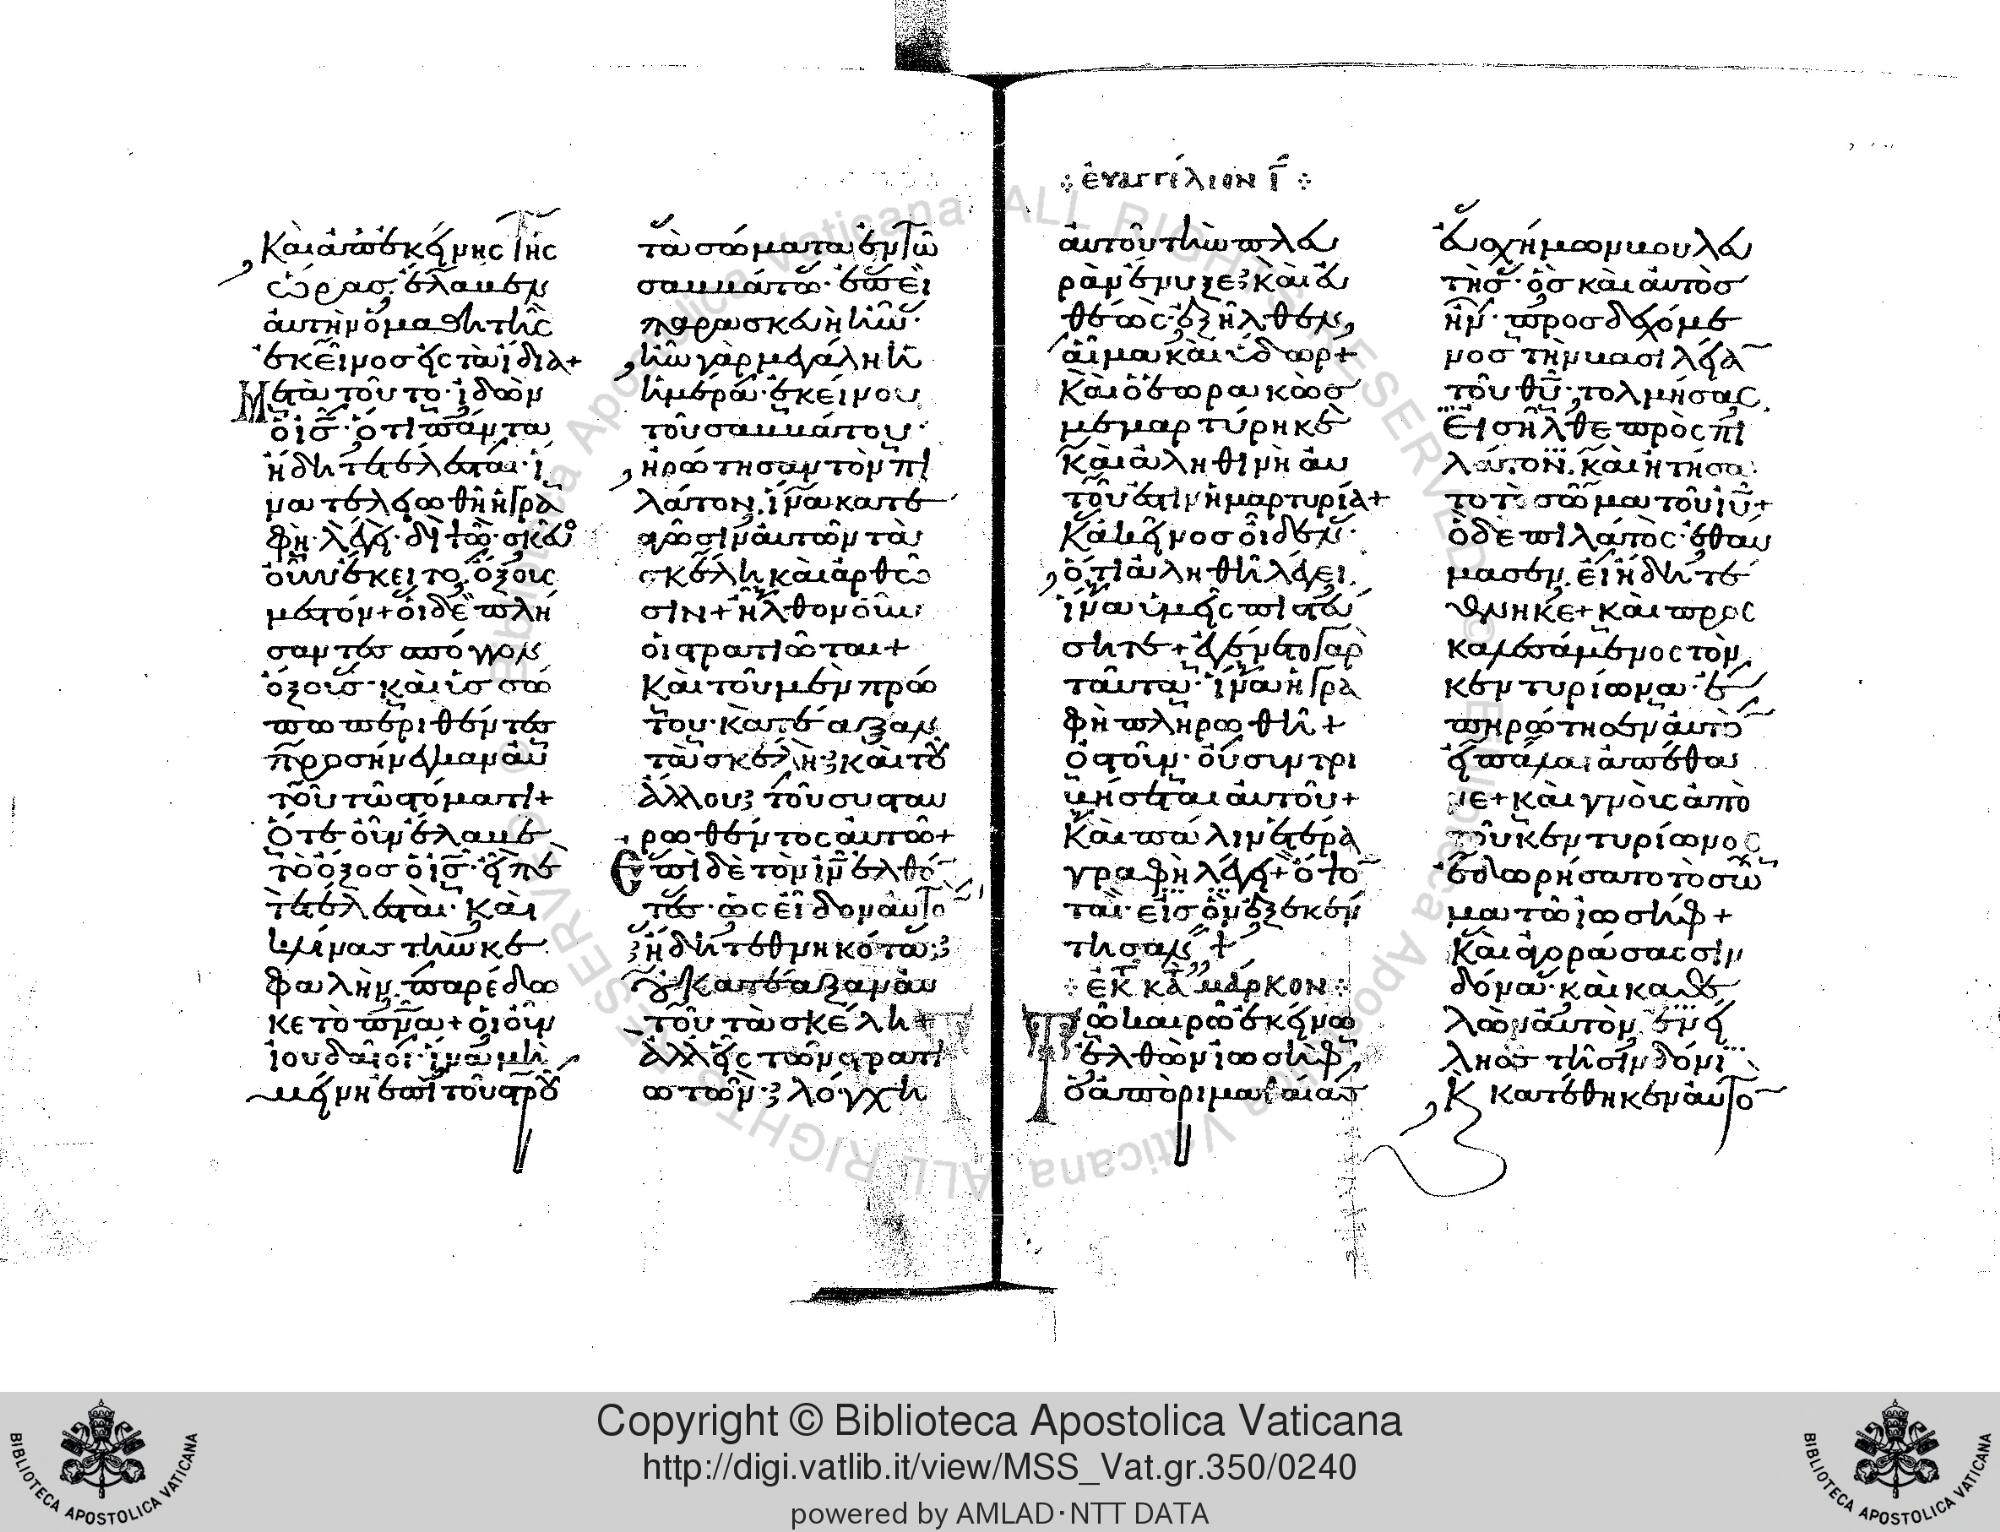 Και απ εκείνης της
ώρας· έλαβεν
αυτὴν ὁ μαθητὴς
ἐκεῖνος εἰς τὰ ἴδια+
Μετὰ τοῦτο· ἰδὼν
ὁ ις· ὅτι πάντα
ἤδη τετέλεσται· ἵ
να τελειωθῆ ἡ γρα
φὴ· λέγει· διψῶ· σκεῦος
οὖν ἔκειτο, ὄξους
μεστόν+ οἱ δὲ πλή
σαντες σπόγγον
ὄξους· καὶ ὑσσώ
πω περιθέντες
προσήνεγκαν αὐ
τοῦ τῶ στόματι+
Ὅτε οὖν ἔλαβε
τὸ ὄξος ὁ ις· εἶπε
τετέλεσται· καὶ
κλίνας τὴν κε
φαλὴν. παρέδω
κε τὸ πνα+ οἱ οὖν
ἰουδαῖοι· ἵνα μὴ
μείνη ἐπὶ τοῦ στρου
τὰ σώματα ἐν τῶ
σαββάτω· ἐπεὶ
παρασκευὴ ἦν·
ἦν γὰρ μεγάλη ἡ
ἡμέρα· ἐκείνου
τοῦ σαββάτου·
ἠρώτησαν τὸν πι
λάτον, ἵνα κατε
αγῶσιν αὐτῶν τὰ
σκέλη καὶ ἀρθῶ
σιν+ ἦλθον οὖν
οἱ στρατιῶται+
Καὶ τοῦ μὲν πρώ
του· κατέαξαν
τὰ σκέλη· καὶ τοῦ
ἄλλου· τοῦ συσταυ
ρωθέντος αὐτῶ+
Ἐπὶ δὲ τὸν ιν ἐλθό
τες· ὡς εἶδον αὐτὸ
ἤδη τεθνηκότα·
οὐ κατέαξαν αὐ
τοῦ τὰ σκέλη+
Ἀλλ εἷς τῶν στρατι
ωτῶν· λόγχη
·:· ἐυαγγέλιον ι ·:·
αὐτοῦ τὴν πλευ
ρὰν ἔνυξε· καὶ εὐ
θέως· ἐξῆλθεν,
αἷμα καὶ ὕδωρ+
Καὶ ὁ ἑωρακὼς
μεμαρτύρηκε
καὶ ἀληθινὴ αὐ
τοῦ ἐστιν ἡ μαρτυρία+
Κἀκεῖνος οἶδεν·
ὅτι ἀληθῆ λέγει,
ἵνα ὑμεῖς πιστεύ
σητε+ ἐγένετο γὰρ
ταῦτα· ἵνα ἡ γρα
φὴ πληρωθῆ+
Ὀστοῦν· οὐ συντρι
βήσεται αὐτοῦ+
Καὶ πάλιν ἑτέρα
γραφὴ λέγει+ ὄψο
ται· εἰς ὃν ἐξεκέν
τησαν+
·:· ἐκ τ κατ μάρκον ·:·
Τῶ καιρῶ ἐκείνω
ἐλθὼν ἰωσὴφ,
ὁ ἀπὸ ἀριμαθαίας
εὐσχήμων βουλευ
τὴς· ὃς καὶ αὐτὸς
ἦν· προσδεχόμε
νος τὴν βασιλεία
τοῦ θυ· τολμήσας,
Εἰσῆλθε πρὸς πι
λάτον. καὶ ητήσα
το τὸ σῶμα τοῦ ιυ+
Ὁ δὲ πιλάτος· ἐθαύ
μασεν. εἰ ἤδη τέ
θνηκε+ καὶ προς
καλεσάμενος τὸν
κεντυρίωνα· ἐ
πηρώτησεν αὐτὸ
εἰ πάλαι ἀπέθα
νε+ καὶ γνοὺς ἀπὸ
τοῦ κεντυρίωνος
ἐδωρήσατο τὸ σῶ
μα τῶ ἰωσὴφ+
Καὶ ἀγοράσας σιν
δόνα· καὶ καθε
λὼν αὐτὸν. ἐνεί
λησε τῆ σινδόνι·
Κ κατέθηκεν αὐτὸ
Copyright © Biblioteca Apostolica Vaticana
http://digi.vatlib.it/view/MSS_Vat.gr.350/0240
powered by AMLAD·NTT DATA
BIBLIOTECA APOSTOLICA VATICANA
BIBLIOTECA APOSTOLICA VATICANA